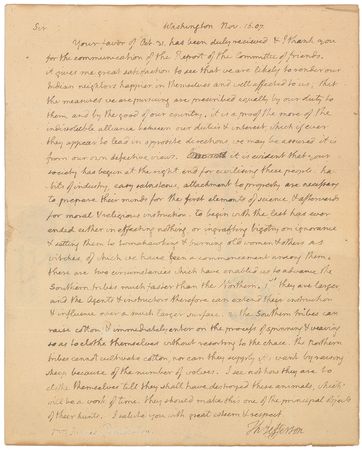 Sir Washington Nov. 16. 07.
Your favor of Oct. 31. has been duly recieved & I thank you
for the communication of the Report of the Committee of friends.
it gives me great satisfaction to see that we are likely to render our
Indian neighbors happier in themselves and well affected to us; that
the measures we are pursuing are prescribed equally by our duty to
them, and by the good of our country. it is a proof the more of the
indissoluble alliance between our duties & interest, which if ever
they appear to lead in opposite directions we may be assured it is
from our own defective views. it is evident that your
society has begun at the right end for civilising these people. ha-
bits of industry, easy subsistence, attachment to property are necessary
to prepare their minds for the first elements of science, & afterwards
for moral & religious instruction. to begin with the last has ever
ended either in effecting nothing, or ingrafting bigotry on ignorance
& setting them to tomahawking & burning old women & others as
witches of which we have seen a commencement among them.
there are two circumstances which have enabled us to advance the
Southern tribes much faster than the Northern. 1. they are larger,
and the Agents & instructors therefore can extend their instruction
& influence over a much larger surface. the Southern tribes can
raise cotton, & immediately enter on the process of spinning & weaving
so as to clothe themselves without resorting to the chase. the Northern
tribes cannot cultivate cotton, nor can they supply it's want by raising
sheep because of the number of wolves. I see not how they are to
clothe themselves till they shall have destroyed these animals, which
will be a work of time. they should make this one of the principal objects
of their hunts. I salute you with great esteem & respect.
Th: Jefferson